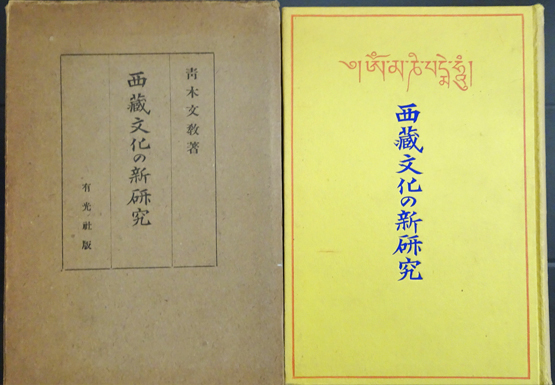 青木文敎著
西藏文化の新研究
有光社版
༄།ཨོཾ་མ་ཎི་པདྨེ་ཧཱུྃ།
西藏文化の新研究